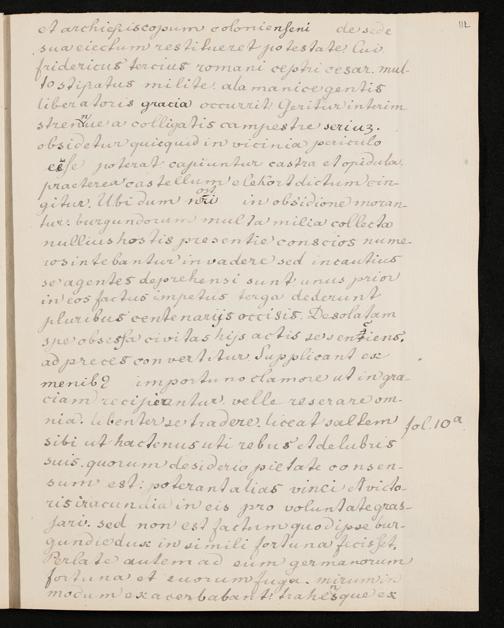 112
et archiepiscopum coloniensem de sede
sua eiectum restitueret potestate. Cui
fridericus tercius romani ceptri cesar. mul-
to stipatus milite. alamanice gentis
liberatoris gracia occurrit Geritur interim
strenue a colligatis campestre
obsidetur quicquid in vicinia periculo
esse poterat capiuntur castra et opidula
praeterea castellum elekort dictum cin-
gitur. Ubi dum nostri in obsidione moran-
tur: burgundorum multa milia collecta
nullius hostis presentie conscios nume-
ros intebantur invadere sed incautius
se agentes deprehensi sunt unus prior
in eos factus impetus terga dederunt
pluribus centenarijs occisis. Desolatam
spe obsessa civitas hijs actis se sentiens.
ad preces convertitur Supplicant ex
menibq importuno clamore ut in gra-
ciam reciperentur. velle reserare om-
nia. libenter se tradere. liceat saltem
fol. 10a
sibi ut hactenus uti rebus et delubris
suis. quorum desiderio pietate consen-
sum est: poterant alias vinci et victo-
ris iracundia in eis pro voluntate gras-
sari. sed non est factum quod ipse bur-
gundie dux in simili fortuna fecisset.
Perlate autem ad eum germanorum
fortuna et suorum fuga. mirum in
modum exacerbabant: trahensque ex